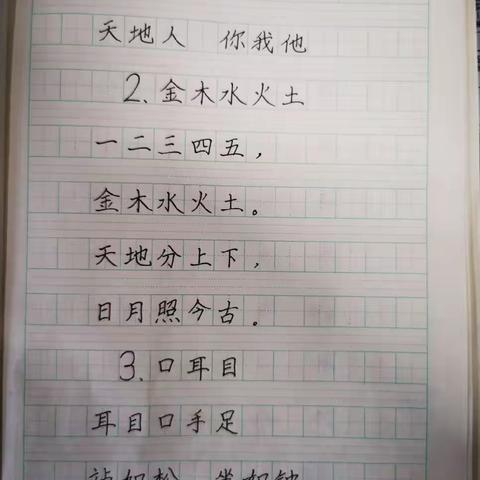 天地人 你我他
2.金木水火土
一二三四五，
金木水火土。
天地分上下，
日月照今古。
3.口耳目
耳目口手足
站如松 坐如钟